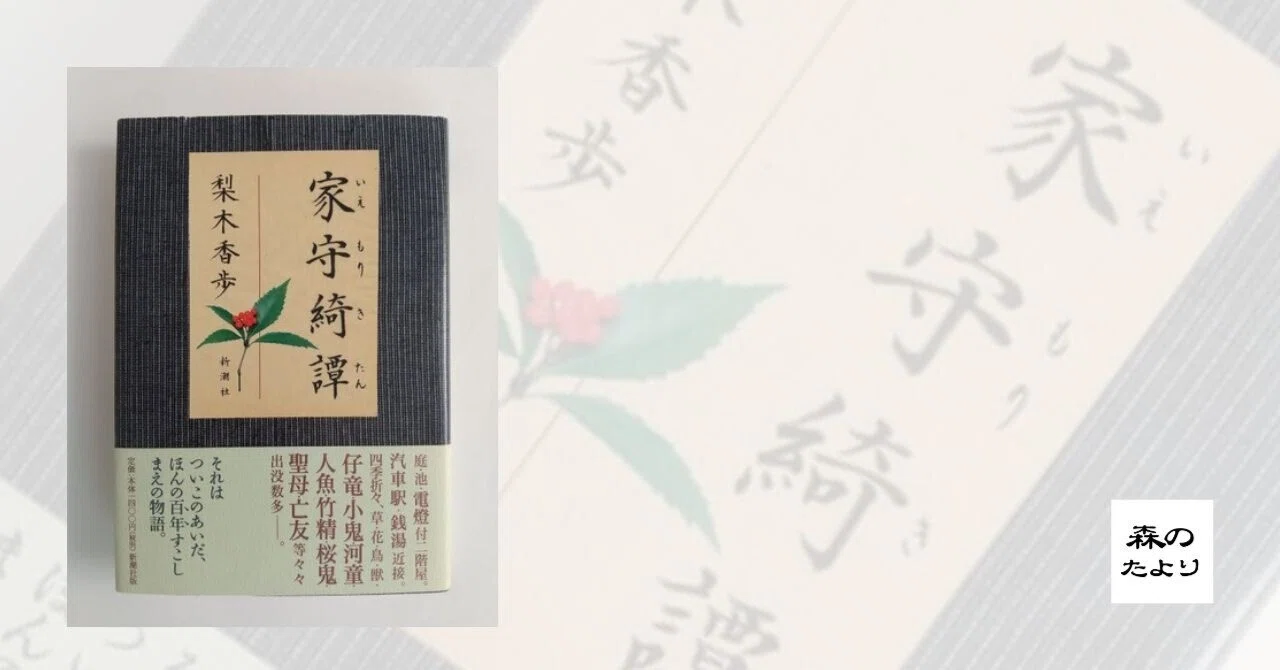 家守綺譚
いえもりきたん
梨木香歩
新潮社
庭・池・電燈付二階屋。
汽車駅・銭湯近接。
四季折々、草・花・鳥・獣・
仔竜・小鬼・河童・
人魚・竹精・桜鬼・
聖母・亡友等々々
出没数多――。
それは
ついこのあいだ、
ほんの百年すこし
まえの物語。
定価・本体一四〇〇円(税別) 新潮社版
木香歩
家守綺譚
いえもりき
森の
たより